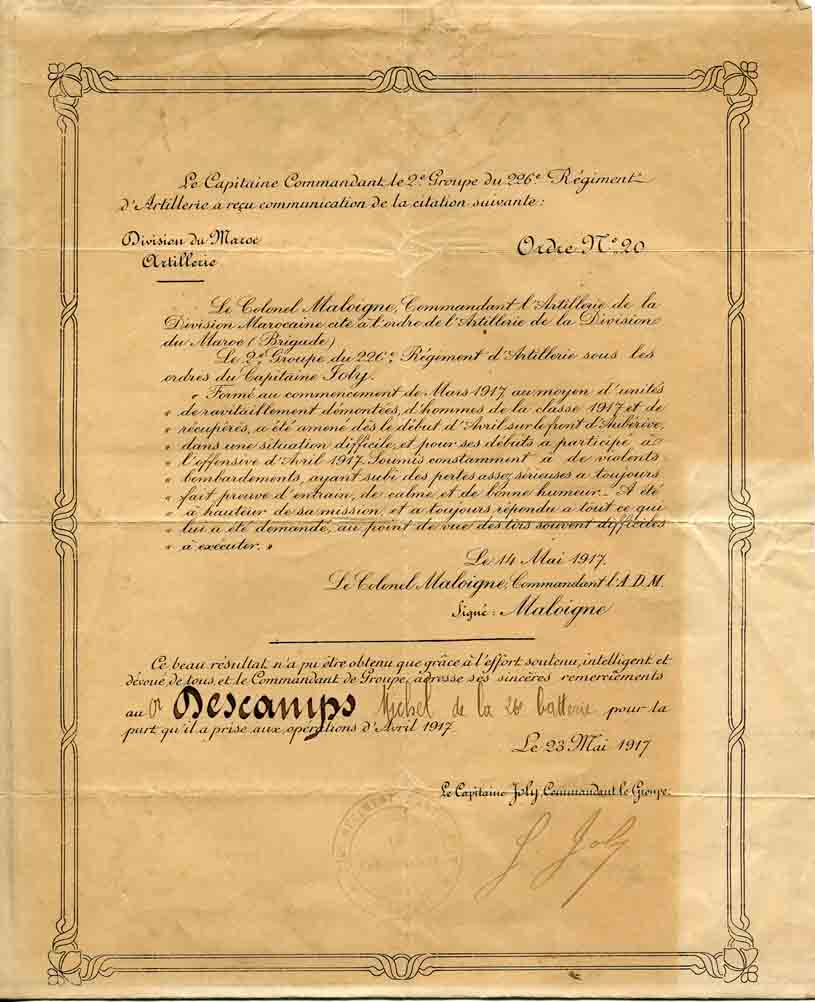 Le Capitaine Commandant le 2e Groupe du 226e Régiment
d'Artillerie a reçu communication de la citation suivante :
Division du Maroc
Artillerie
Ordre No 20
Le Colonel Maloigne, Commandant l'Artillerie de la
Division Marocaine cite à l'ordre de l'Artillerie de la Division
du Maroc (Brigade)
Le 2e Groupe du 226e Régiment d'Artillerie sous les
ordres du Capitaine Joly.
" Formé au commencement de Mars 1917 au moyen d'unités
" de ravitaillement démontées, d'hommes de la classe 1917 et de
" récupérés, a été amené dès le début d'Avril sur le front d'Aubérive,
" dans une situation difficile, et pour ses débuts a participé à
" l'offensive d'Avril 1917. Soumis constamment à de violents
" bombardements, ayant subi des pertes assez sérieuses a toujours
" fait preuve d'entrain, de calme et de bonne humeur _ A été
" à hauteur de sa mission, et a toujours répondu à tout ce qui
" lui a été demandé, au point de vue des tirs souvent difficiles
" à exécuter. "
Le 14 Mai 1917.
Le Colonel Maloigne, Commandant l'A.D.M.
Signé : Maloigne
Ce beau résultat n'a pu être obtenu que grâce à l'effort soutenu, intelligent et
dévoué de tous et le Commandant de Groupe, adresse ses sincères remerciements
au Cr Descamps Michel de la 26e batterie pour la
part qu'il a prise aux opérations d'Avril 1917
Le 23 Mai 1917
Le Capitaine Joly, Commandant le Groupe
Joly